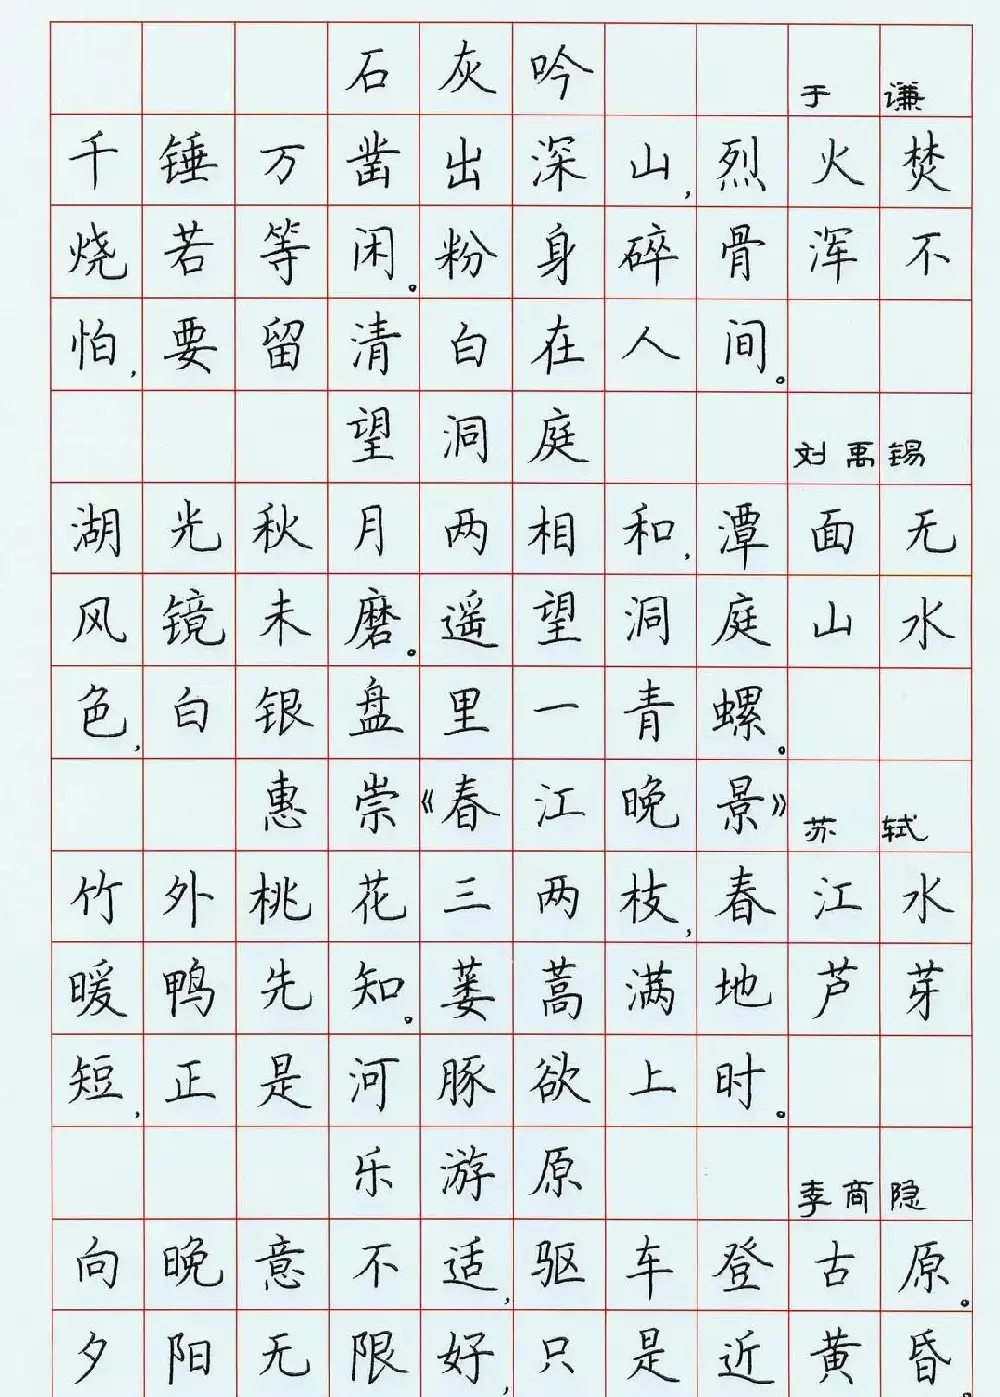 石灰吟 于谦
千锤万凿出深山,烈火焚
烧若等闲。粉身碎骨浑不
怕,要留清白在人间。
望洞庭 刘禹锡
湖光秋月两相和,潭面无
风镜未磨。遥望洞庭山水
色,白银盘里一青螺。
惠崇《春江晚景》 苏轼
竹外桃花三两枝,春江水
暖鸭先知。蒌蒿满地芦芽
短,正是河豚欲上时。
乐游原 李商隐
向晚意不适,驱车登古原。
夕阳无限好,只是近黄昏。